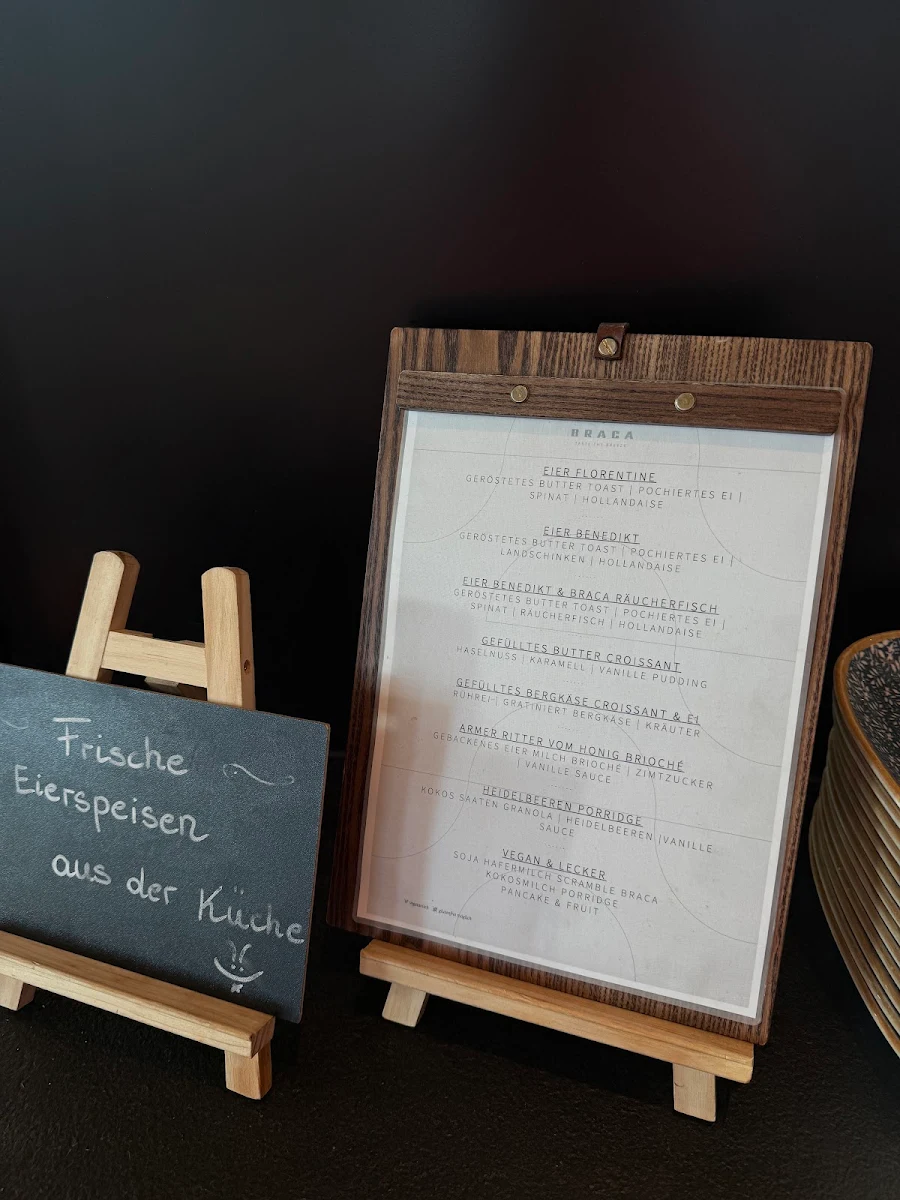 Frische
Eierspeisen
aus der Küche
BRACA
EIER FLORENTINE
GERÖSTETES BUTTER TOAST | POCHIERTES EI |
SPINAT | HOLLANDAISE
EIER BENEDIKT
GERÖSTETES BUTTER TOAST | POCHIERTES EI |
LANDSCHINKEN | HOLLANDAISE
EIER BENEDIKT & BRACA RÄUCHERFISCH
GERÖSTETES BUTTER TOAST | POCHIERTES EI |
SPINAT | RÄUCHERFISCH | HOLLANDAISE
GEFÜLLTES BUTTER CROISSANT
HASELNUSS | KARAMELL | VANILLE PUDDING
GEFÜLLTES BERGKÄSE CROISSANT & EI
RÜHREI | GRATINIERT BERGKÄSE | KRÄUTER
ARMER RITTER VOM HONIG BRIOCHÉ
GEBACKENES EIER MILCH BRIOCHÉ | ZIMTZUCKER
| VANILLE SAUCE
HEIDELBEEREN PORRIDGE
KOKOS SAATEN GRANOLA | HEIDELBEEREN |VANILLE
SAUCE
VEGAN & LECKER
SOJA HAFERMILCH SCRAMBLE BRACA
KOKOSMILCH PORRIDGE
PANCAKE & FRUIT